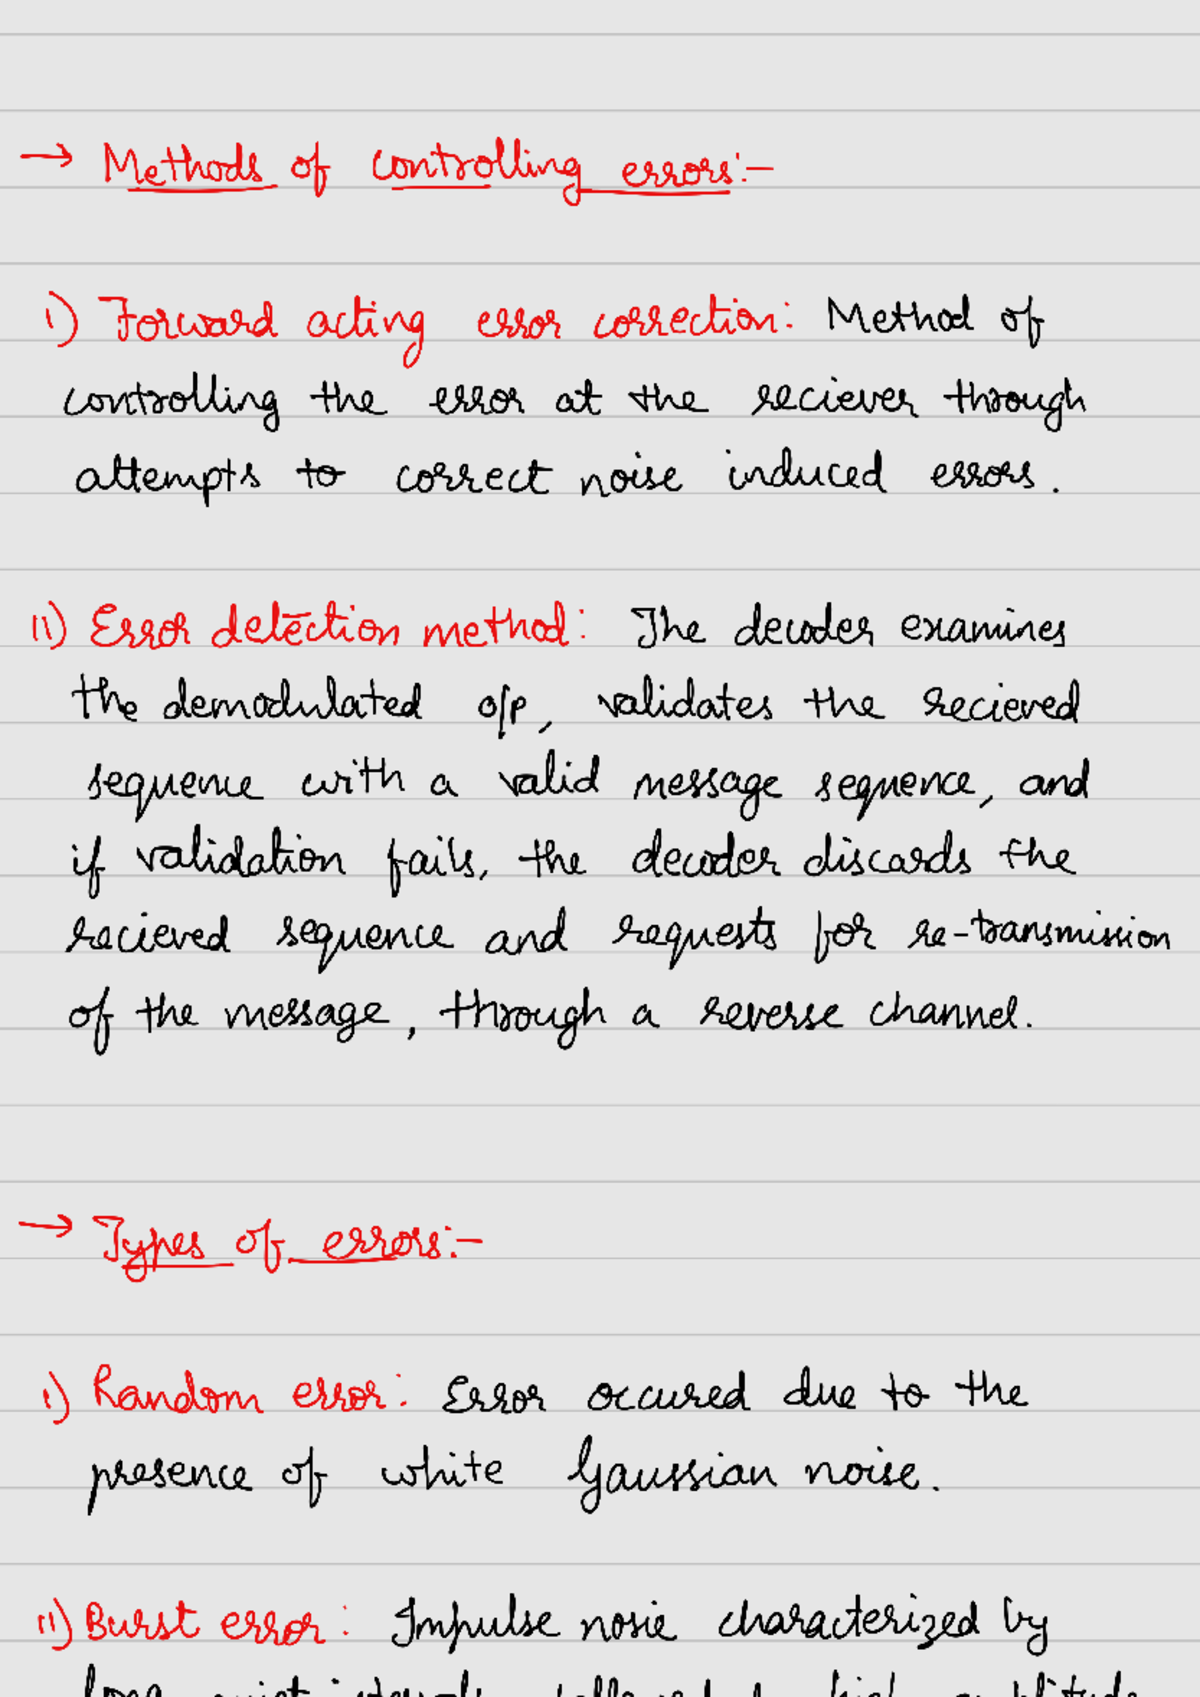 → Methods of controlling errors:-
i) Forward acting error correction: Method of
controlling the error at the reciever through
attempts to correct noise induced errors.
ii) Error detection method: The decoder examines
the demodulated o/p, validates the recieved
sequence with a valid message sequence, and
if validation fails, the decoder discards the
recieved sequence and requests for re-transmission
of the message, through a reverse channel.
→ Types of errors:-
i) Random error: Error occured due to the
presence of white Gaussian noise.
ii) Burst error: Impulse nosie characterized by
long quiet intervals followed by high amplitude